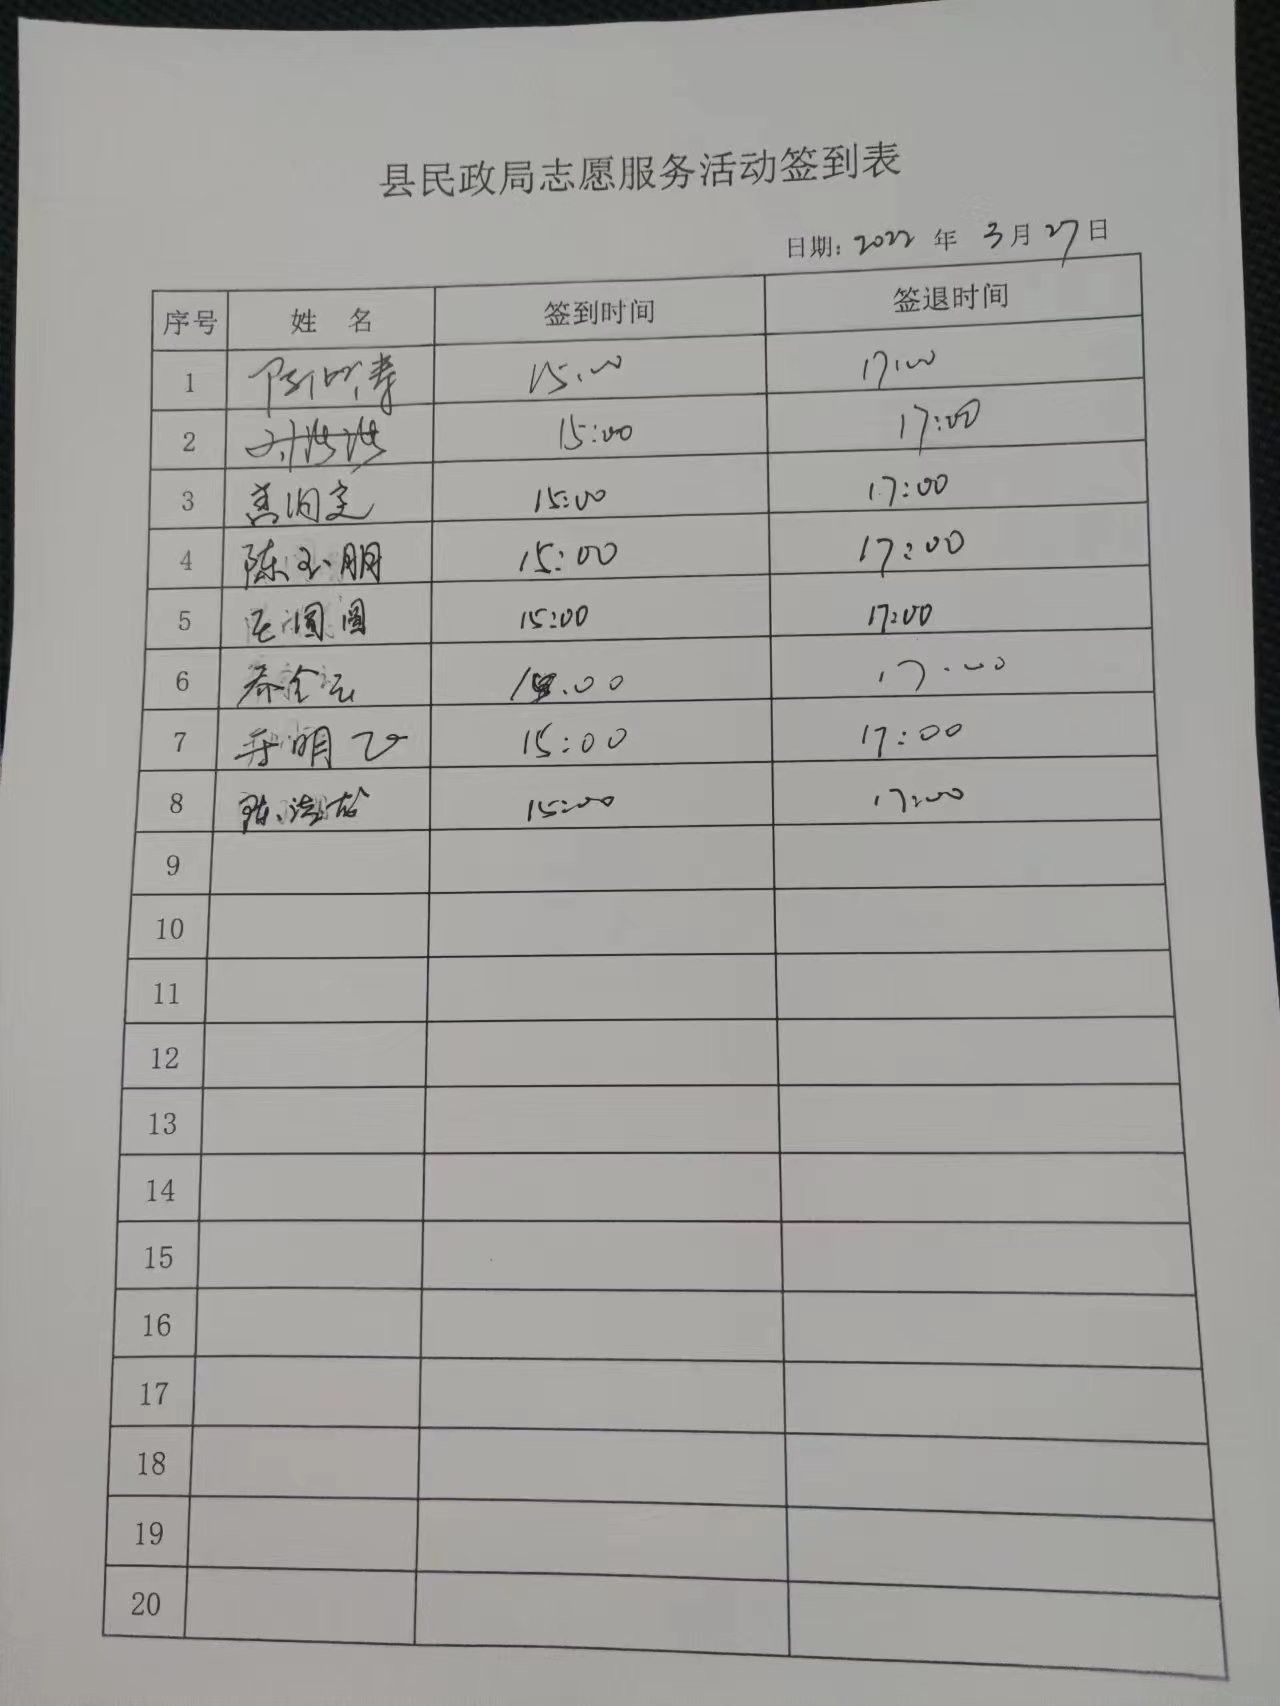 县民政局志愿服务活动签到表
日期: 2022 年 3 月 27 日
序号 姓 名 签到时间 签退时间
1 15:00 17:00
2 15:00 17:00
3 15:00 17:00
4 陈玉朋 15:00 17:00
5 圆圆 15:00 17:00
6 乔全云 17:00
7 明 15:00 17:00
8 陈 15:00 17:00
9
10
11
12
13
14
15
16
17
18
19
20